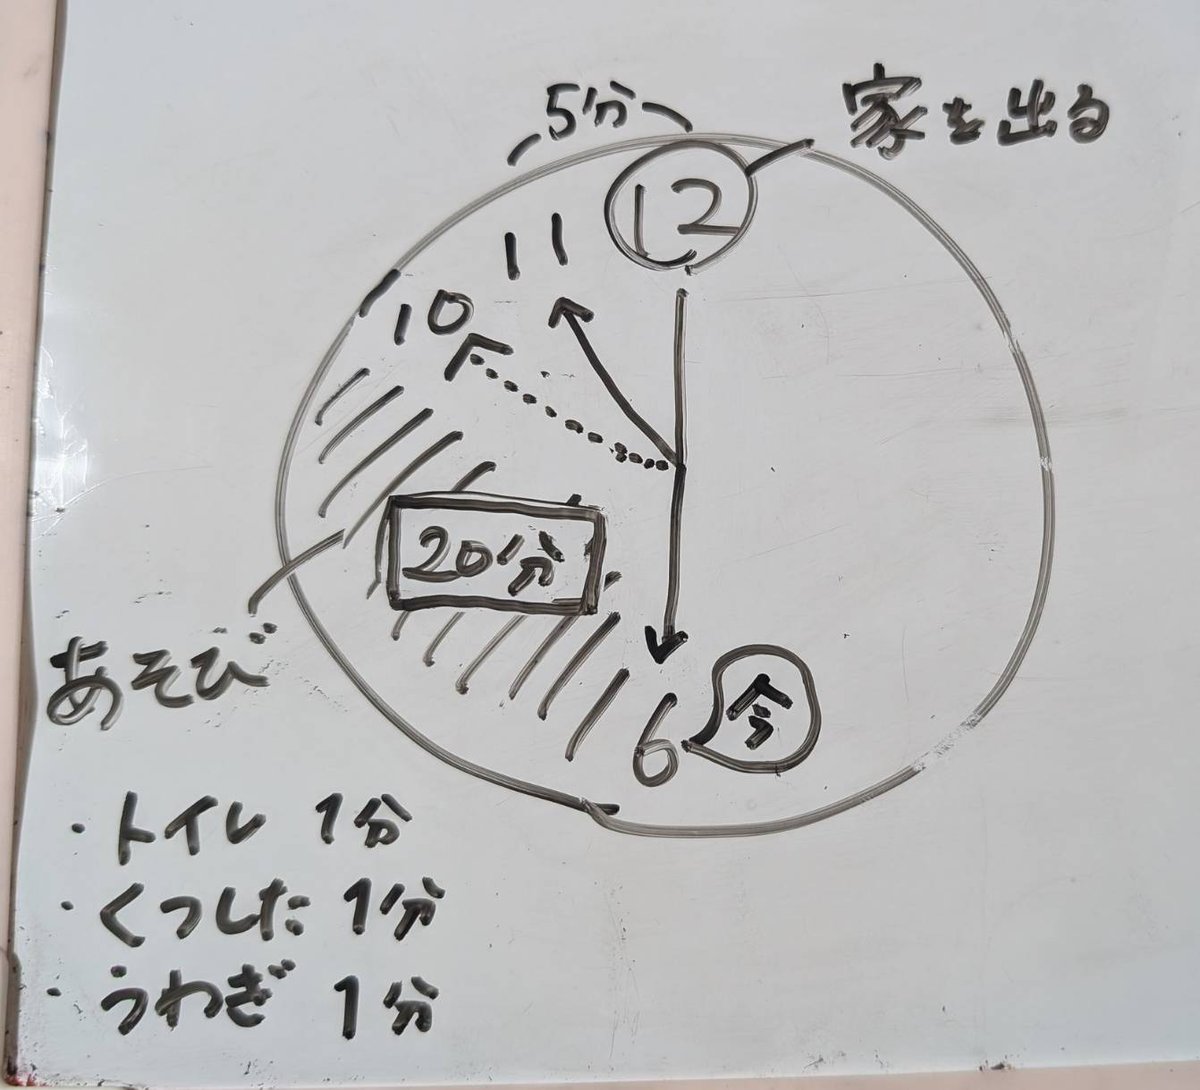 5分
家を出る
12
11
10
20分
あそび
6
今
・トイレ 1分
・くつした 1分
・うわぎ 1分